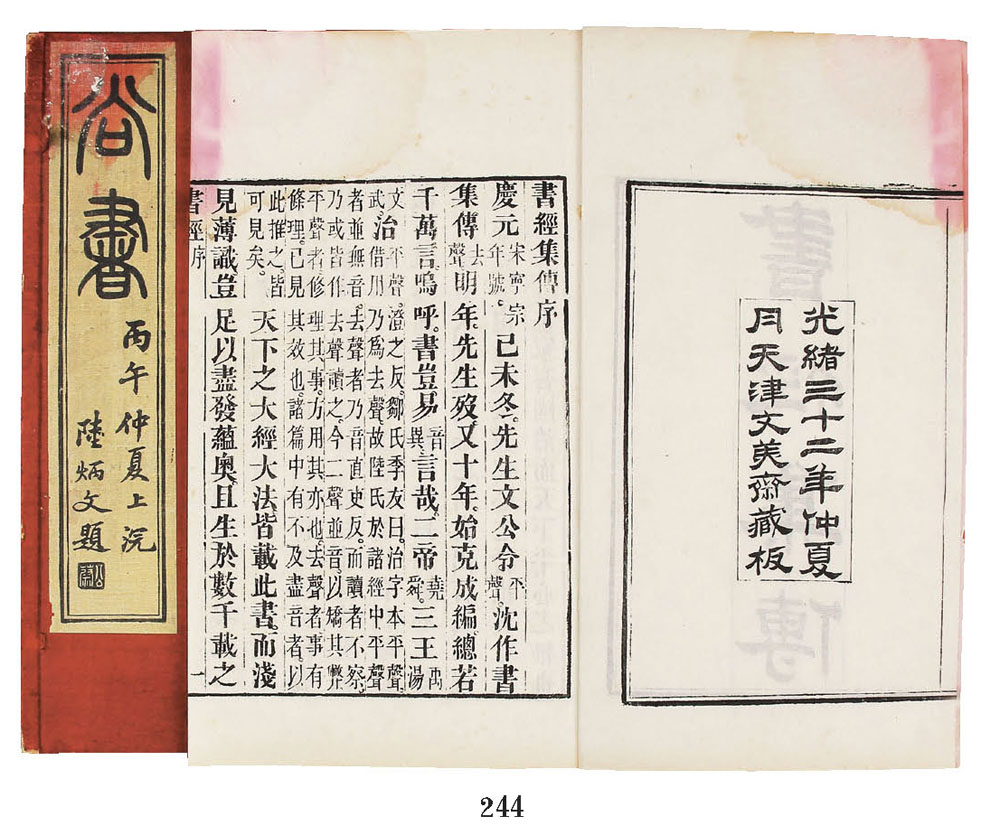 光緒三十二年仲夏
月天津文美齋藏板
書經集傳序
慶元宋寧宗年號。己未冬。先生文公令平聲。沈作書
集傳去聲。明年。先生歿。又十年。始克成編。總若
千萬言。嗚呼。書豈易音異。言哉。二帝堯舜。三王禹湯
文武治平聲。澄之反。鄒氏季友曰。治字本平聲。借用乃爲去聲。故陸氏於諸經中平聲
者並無音。去聲者乃音直吏反。而讀者不察。乃或皆作去聲讀之。今二聲並音。以矯其弊
平聲者修理其事。方用其亦也。去聲者事有條理。已見其效也。諸篇中有不及盡音者。以
此推之。皆可見矣。天下之大經大法。皆載此書。而淺
見薄識。豈足以盡發蘊奧。且生於數千載之
書經序 一
尚書
丙午仲夏上浣
陸炳文題
244